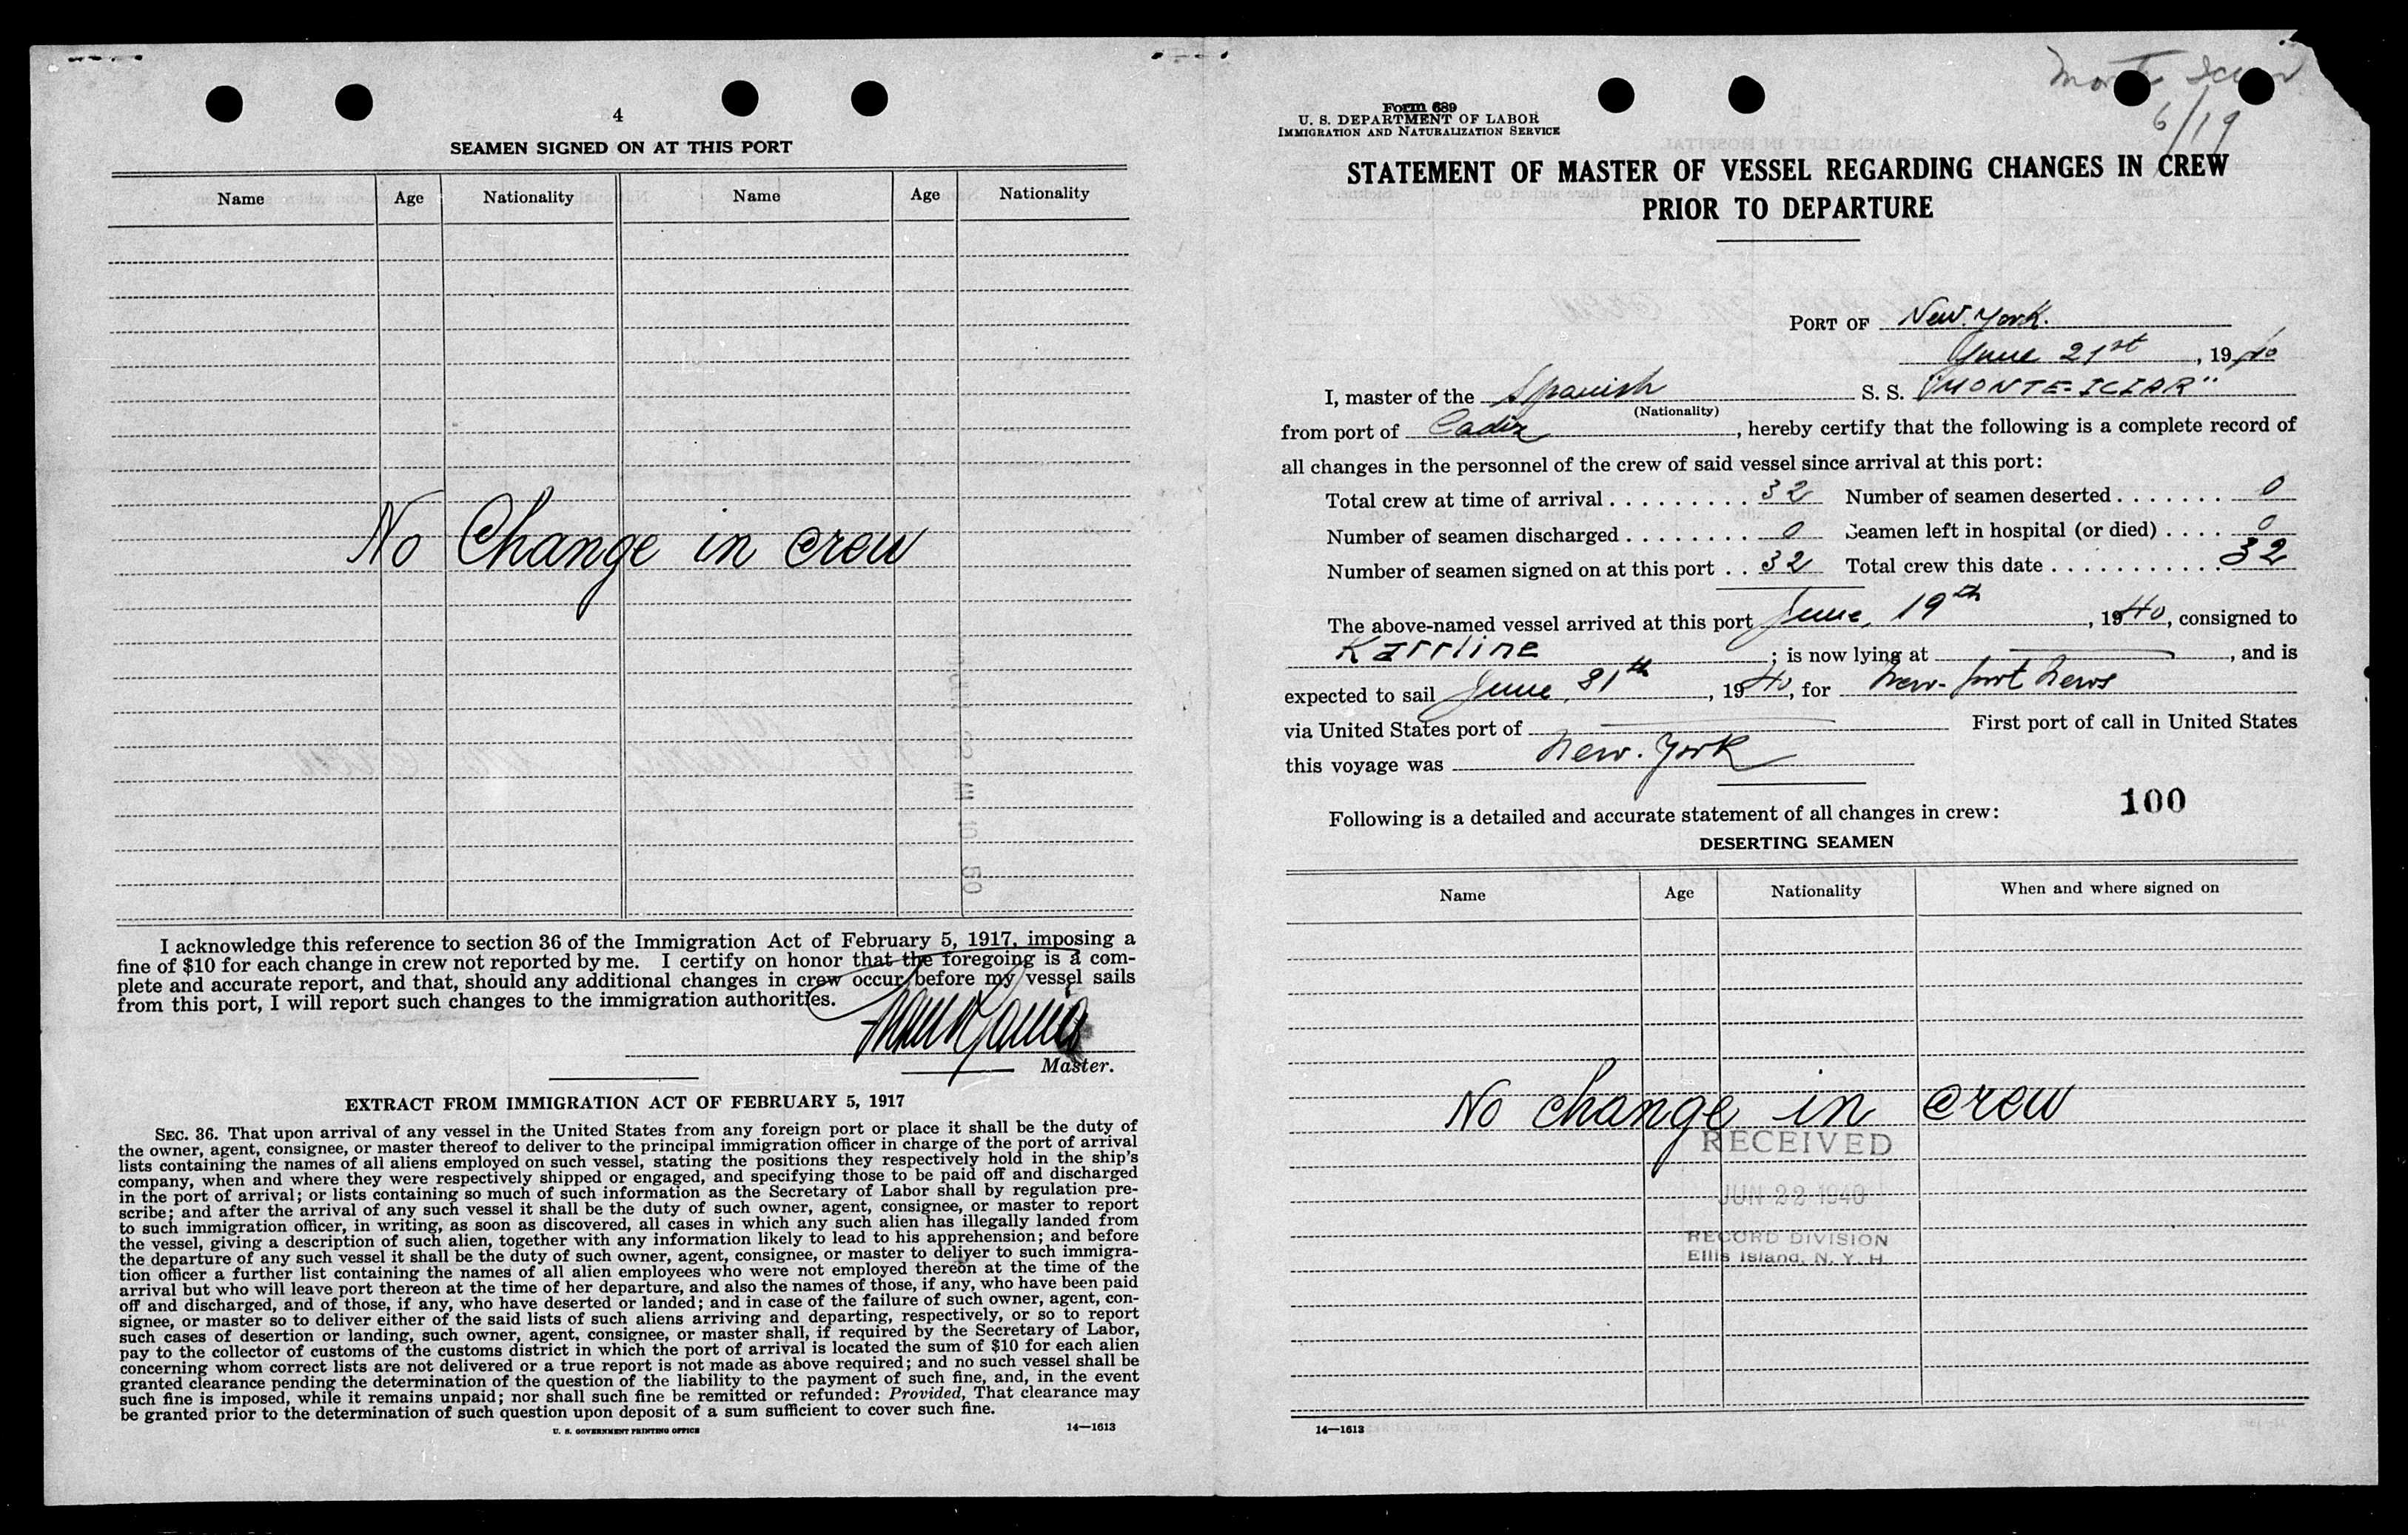 4
SEAMEN SIGNED ON AT THIS PORT
Name Age Nationality Name Age Nationality
No Change in crew
I acknowledge this reference to section 36 of the Immigration Act of February 5, 1917, imposing a
fine of $10 for each change in crew not reported by me. I certify on honor that the foregoing is a com-
plete and accurate report, and that, should any additional changes in crew occur before my vessel sails
from this port, I will report such changes to the immigration authorities.
Master.
EXTRACT FROM IMMIGRATION ACT OF FEBRUARY 5, 1917
SEC. 36. That upon arrival of any vessel in the United States from any foreign port or place it shall be the duty of
the owner, agent, consignee, or master thereof to deliver to the principal immigration officer in charge of the port of arrival
lists containing the names of all aliens employed on such vessel, stating the positions they respectively hold in the ship's
company, when and where they were respectively shipped or engaged, and specifying those to be paid off and discharged
in the port of arrival; or lists containing so much of such information as the Secretary of Labor shall by regulation pre-
scribe; and after the arrival of any such vessel it shall be the duty of such owner, agent, consignee, or master to report
to such immigration officer, in writing, as soon as discovered, all cases in which any such alien has illegally landed from
the vessel, giving a description of such alien, together with any information likely to lead to his apprehension; and before
the departure of any such vessel it shall be the duty of such owner, agent, consignee, or master to deliver to such immigra-
tion officer a further list containing the names of all alien employees who were not employed thereon at the time of the
arrival but who will leave port thereon at the time of her departure, and also the names of those, if any, who have been paid
off and discharged, and of those, if any, who have deserted or landed; and in case of the failure of such owner, agent, con-
signee, or master so to deliver either of the said lists of such aliens arriving and departing, respectively, or so to report
such cases of desertion or landing, such owner, agent, consignee, or master shall, if required by the Secretary of Labor,
pay to the collector of customs of the customs district in which the port of arrival is located the sum of $10 for each alien
concerning whom correct lists are not delivered or a true report is not made as above required; and no such vessel shall be
granted clearance pending the determination of the question of the liability to the payment of such fine, and, in the event
such fine is imposed, while it remains unpaid; nor shall such fine be remitted or refunded: Provided, That clearance may
be granted prior to the determination of such question upon deposit of a sum sufficient to cover such fine.
U. S. GOVERNMENT PRINTING OFFICE 14—1613
6/19
Form 689
U. S. DEPARTMENT OF LABOR
IMMIGRATION AND NATURALIZATION SERVICE
STATEMENT OF MASTER OF VESSEL REGARDING CHANGES IN CREW
PRIOR TO DEPARTURE
PORT OF New. York.
June 21st, 1940
I, master of the Spanish S. S. "MONTE-ICIAR"
(Nationality)
from port of Cadiz, hereby certify that the following is a complete record of
all changes in the personnel of the crew of said vessel since arrival at this port:
Total crew at time of arrival . . . . . . . . . 32 Number of seamen deserted . . . . . . . 0
Number of seamen discharged . . . . . . . . 0 Seamen left in hospital (or died) . . . . 0
Number of seamen signed on at this port . . 32 Total crew this date . . . . . . . . . . . . 32
The above-named vessel arrived at this port June, 19th, 1940, consigned to
Karrline; is now lying at —, and is
expected to sail June, 21th, 1940, for New-port News
via United States port of — First port of call in United States
this voyage was New. York
100
Following is a detailed and accurate statement of all changes in crew:
DESERTING SEAMEN
Name Age Nationality When and where signed on
No change in crew
RECEIVED
JUN 22 1940
RECORD DIVISION
Ellis Island, N. Y. H.
14—1613